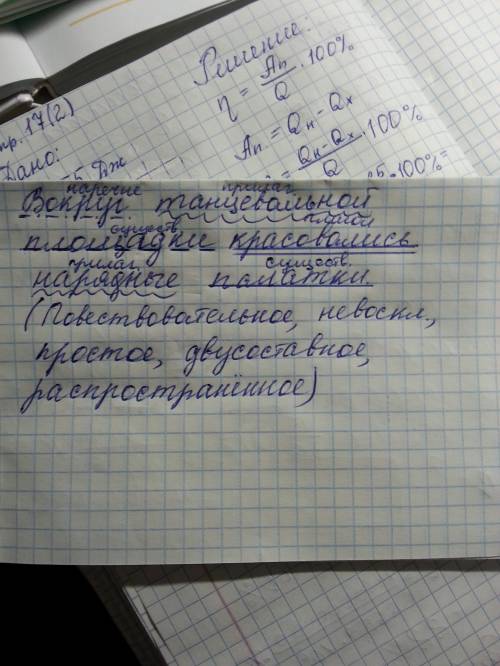 Решение:
η = Ап/Q · 100%
Ап = Qн - Qх
Qн - Qх/Q · 100%
пр. 17(2)
Дано:
Дж
25 · 100% =
наречие прилаг
Вокруг танцевальной
существ глагол
площадки красовались
прилаг существ.
нарядные палатки.
(Повествовательное, невоскл.,
простое, двусоставное,
распространённое)